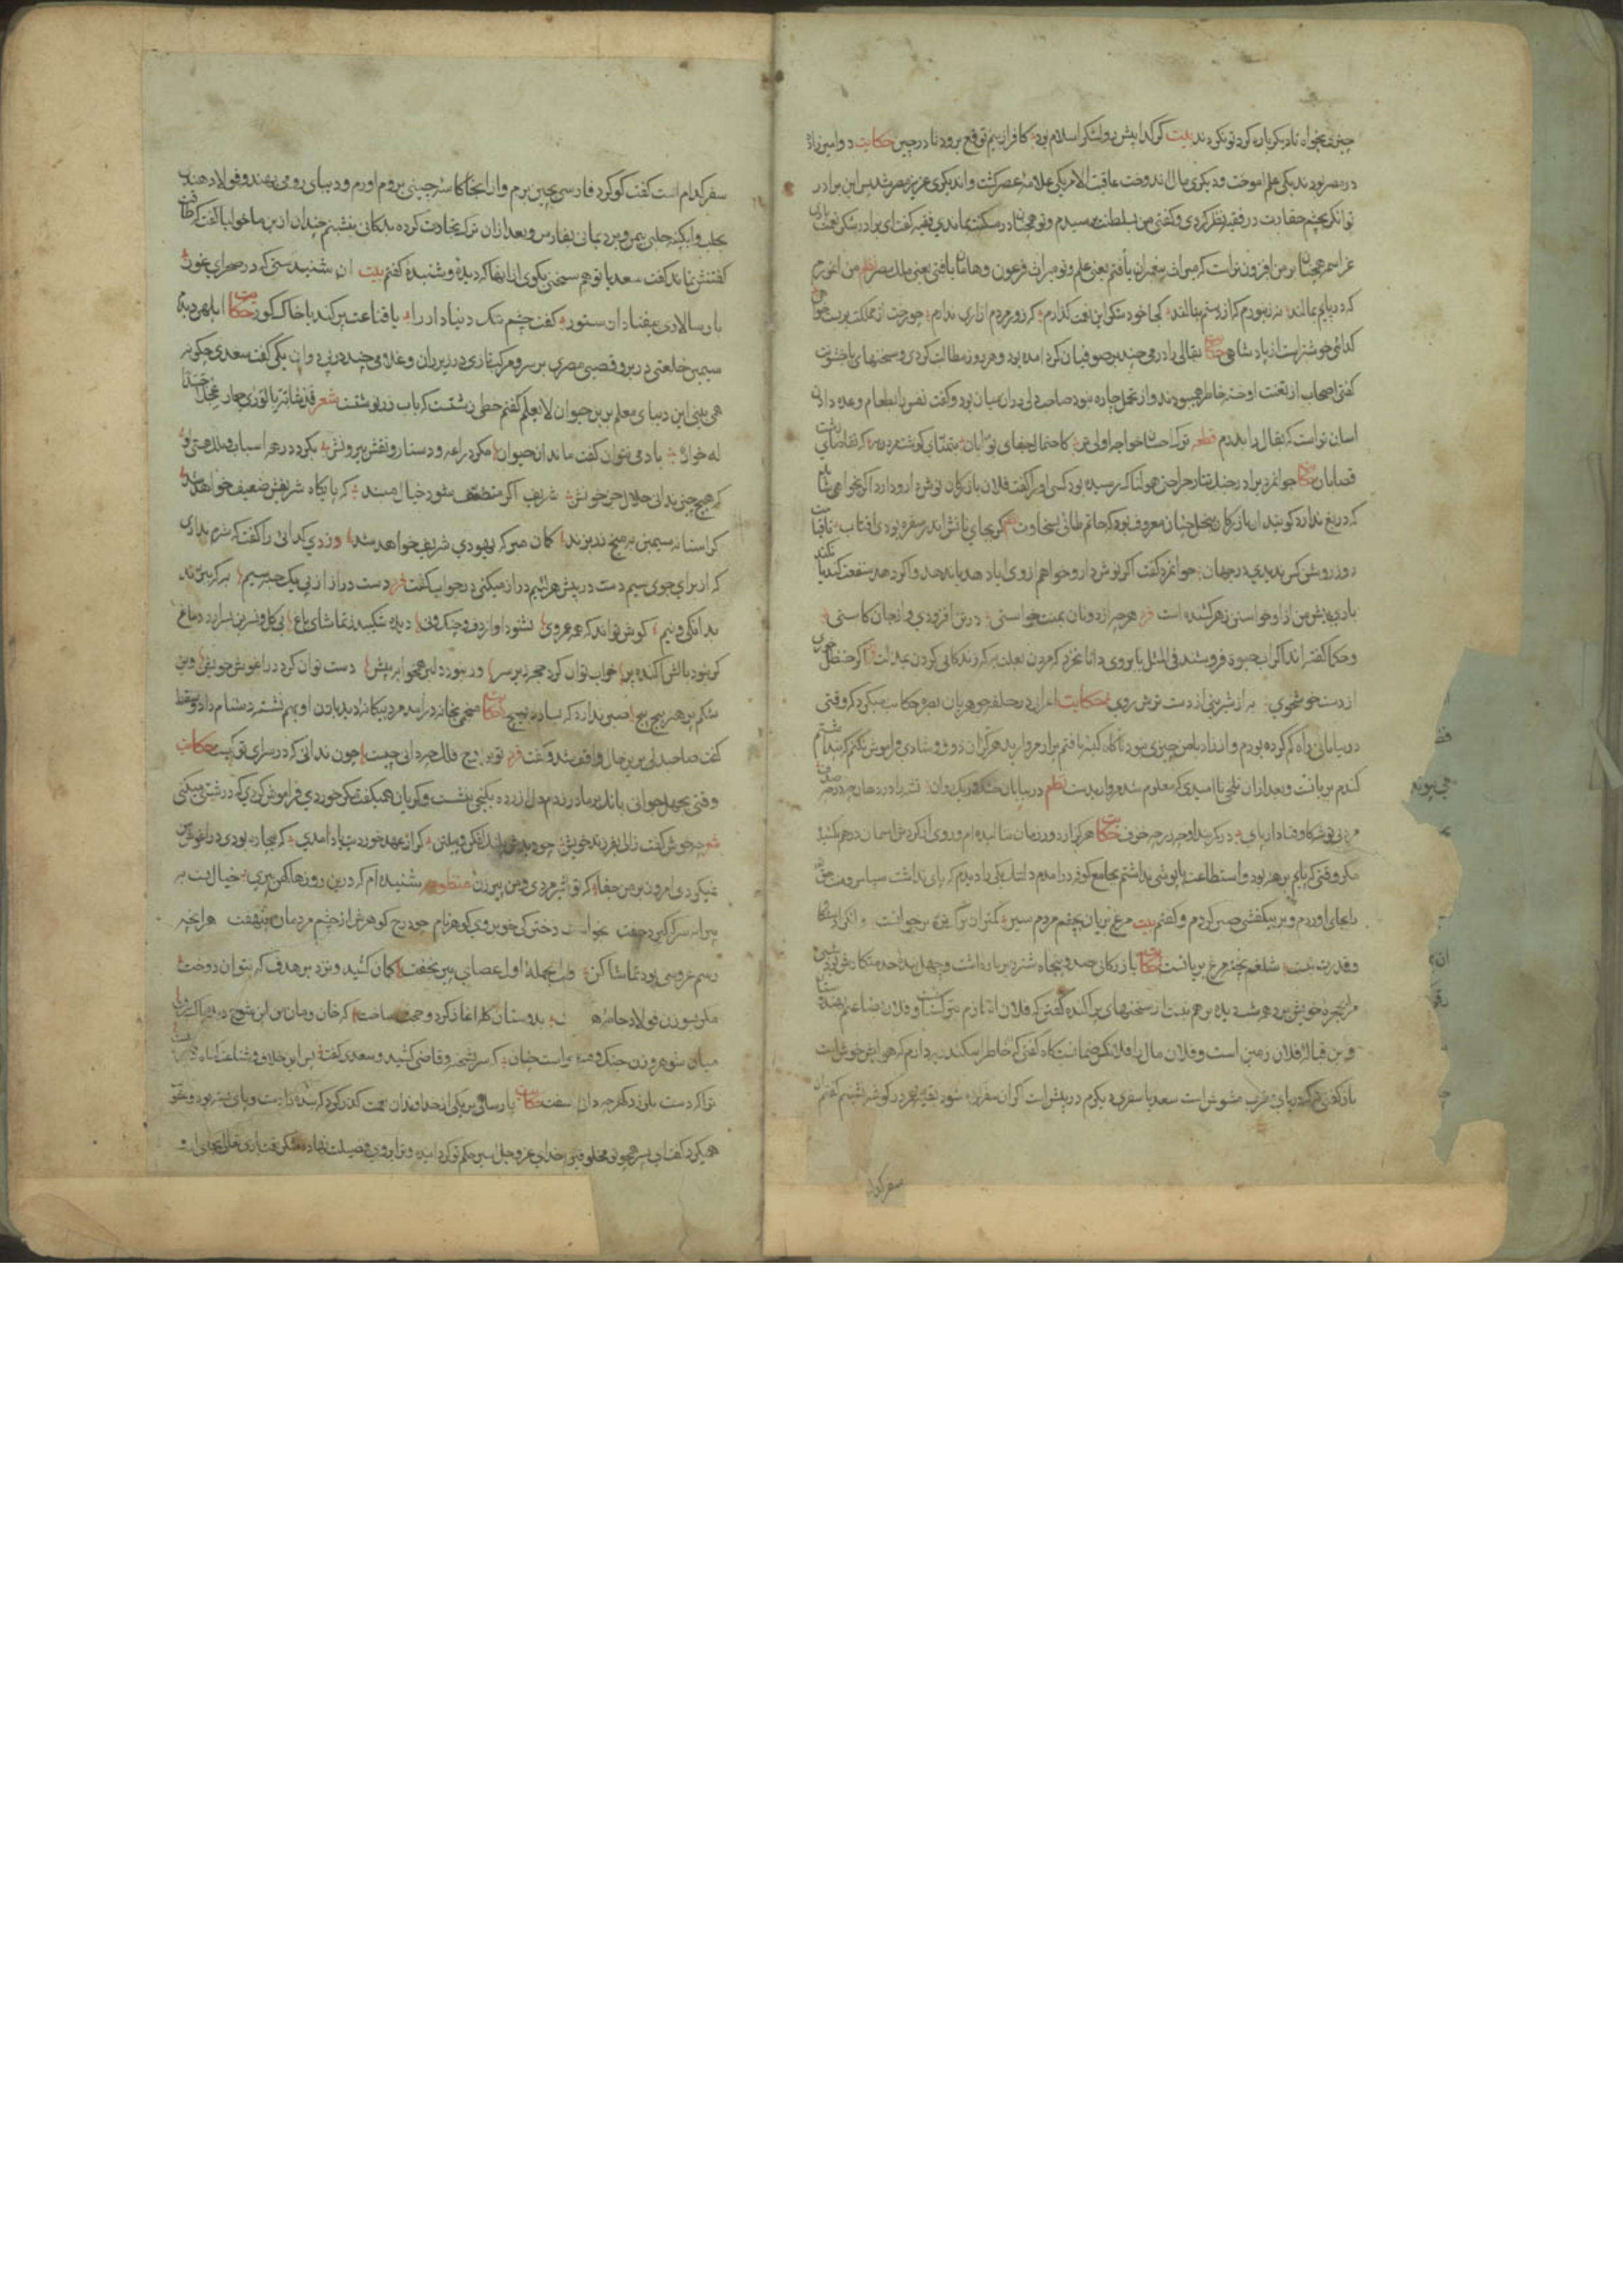 چیزی بخواه تا دیکر باره کرد تو نکردند بیت کر کدا پیش رو لشکر اسلام بود کافر از بیم توقع برود تا در چین حکایت دو امیرزاده
در مصر بودند یکی علم اموخت و دیکری مال اندوخت عاقبت الامر یکی علامه عصر کشت و ان دیکری عزیز مصر شد پس این برادر
توانکر بچشم حقارت در فقیه نظر کردی و کفتی من بسلطنت رسیدم و تو همچنان در مسکنت بماندی فقیه کفت ای برادر شکر نعمت باری
عز اسمه همچنان بر من افزون تراست که میراث پیغمبران یافتم یعنی علم و تو میراث فرعون و هامان یافتی یعنی ملک مصر نظم من ان مورم
که در پایم بمالند نه زنبورم که از دستم بنالند کجا خود شکر این نعمت کذارم که زور مردم ازاری ندارم
کدائی خوشتر است از پادشاهی حکایت بقالی را درمی چند بر صوفیان کرد امده بود و هر روز مطالبت کردی و سخنهای باخشونت
کفتی اصحاب از تعنت او خسته خاطر همی‌بودند و از تحمل چاره نبود صاحب دلی دران میان بود و کفت نفس را بطعام وعده دادن
اسان تراست که بقال را بدرم قطعه ترک احسان خواجه اولی تر کاحتمال جفای بوابان بتمنای کوشت مردن به که تقاضای زشت
قصابان حکایت جوانمردی را در جنک تتار جراحتی هولناک رسیده بود کسی او را کفت فلان بازرکان نوش دارو دارد اکر بخواهی باشد
که دریغ ندارد کویند ان بازرکان ببخل چنان معروف بود که حاتم طائی بسخاوت کر بجای نانش اندر سفره بودی افتاب تا قیامت
روز روشن کس ندیدی در جهان جوانمرد کفت اکر نوش دارو خواهم از وی یا دهد یا ندهد و اکر دهد منفعت کند یا نکند
باری پیش من از او خواستن زهر کشنده است فرد هر چه از دونان بمنت خواستی در تن افزودی و از جان کاستی
و حکما کفته اند اکر اب حیوة فروشند فی المثل بابروی دانا نخرد که مردن بعلت به که زندکانی کردن بمذلت اکر حنظل خوری
از دست خوشخوی به از شیرینی از دست ترش روی حکایت اعرابی را در حلقه جوهریان بصره حکایت میکرد که وقتی
در بیابانی راه کم کرده بودم و از زاد با من چیزی نبود ناکاه کیسه یافتم پر از مروارید هرکز ان ذوق و شادی فراموش نکنم که پنداشتم
کندم بریانست و بعد ازان تلخی نا امیدی که معلوم شد مرواریدست نظم در بیابان خشک و ریک روان تشنه را در دهان چه در چه صدف
مرد بی توشه کاوفتاد از پای در کمربند او چه زر چه خزف حکایت هرکز از دور زمان ننالیده ام و روی از کردش اسمان در هم نکشیده
مکر وقتی که پایم برهنه بود و استطاعت پاپوشی نداشتم بجامع کوفه در امدم دلتنک یکی را دیدم که پای نداشت سپاس نعمت حق
بجای اوردم و بر بیکفشی صبر کردم و کفتم بیت مرغ بریان بچشم مردم سیر کمتر از برک تره بر خوانست و انکرا دستکاه
و قدرت نیست شلغم پخته مرغ بریانست حکایت بازرکانی صد و پنجاه شتر در بار داشت و چهل بنده خدمتکار شبی
مرا بحجره خویش برد همه شب دیده بر هم نبست از سخنهای پراکنده کفتن که فلان انبازم بترکستان و فلان بضاعتم بهندوستان
و این قباله فلان زمین است و فلان مال را فلان کس ضمانست کاه کفتی که خاطر اسکندریه دارم که هوایش خوش است
باز کفتی که دریای مغرب مشوش است سعدیا سفری دیکرم در پیش است اکر ان سفر کرده شود بقیه عمر در کوشه بنشینم کفتم ان
سفر کدام
سفر کدام است کفت کوکرد فارسی بچین برم و از انجا کاسه چینی بروم اورم و دیبای رومی بهند و فولاد هندی
بحلب و ابکینه حلبی بیمن و برد یمانی بفارس و بعد ازان ترک تجارت کرده بدکانی بنشینم چندان ازین ماخولیا کفت که طاقت
کفتنش نماند کفت سعدیا تو هم سخنی بکوی از انها که دیده و شنیده کفتم بیت ان شنیدستی که در صحرای غور
بار سالاری بیفتاد از ستور کفت چشم تنک دنیا دار را یا قناعت پر کند یا خاک کور حکایت ابلهی دیدم
سمین خلعتی در بر و قصبی مصری بر سر و مرکب تازی در زیر ران و غلامی چند در پی دوان یکی کفت سعدی چکونه
همی بینی این دیبای معلم برین حیوان لا یعلم کفتم خطی زشت است که باب زر نوشتست شعر قد شابه بالوری حمار عجلا جسدا
له خوار بادمی نتوان کفت ماند این حیوان مکر دراعه و دستار و نقش بیرونش بکرد در همه اسباب و ملک هستی او
که هیچ چیز نبینی حلال جز خونش شریف اکر متضعف شود خیال مبند که پایکاه شریفش ضعیف خواهد شد
کر استانه سیمین بمیخ زر بزند کمان مبر که یهودی شریف خواهد شد دزدی کدائی را کفت که شرم نداری
که از برای جوی سیم دست در پیش هر لئیم دراز میکنی در جواب کفت فرد دست دراز از پی یک حبه سیم به که ببرند
بدانکی و نیم کوش تواند که همه عمر وی نشنود اواز دف و چنک و نی دیده شکیبد ز تماشای باغ بی کل و نسرین بسر ارد دماغ
کر نبود بالش اکنده پر خواب توان کرد حجر زیر سر ور نبود دلبر همخوابه پیش دست توان کرد در اغوش خویش وین
شکم بی هنر پیچ پیچ صبر ندارد که بسازد بهیچ حکایت منجمی بخانه درآمد مرد بیکانه دید با زن او بهم نشسته دشنام داد و سقط
کفت صاحبدلی برین حال واقف شد و کفت فرد تو بر اوج فلک چه دانی چیست چون ندانی که در سرای تو کیست حکایت
وقتی بجهل جوانی بانک بر مادر زدم دل ازرده بکنجی نشست و کریان همیکفت مکر خوردی فراموش کردی که درشتی میکنی
شعر چه خوش کفت زالی بفرزند خویش چو دیدش پلنک افکن و پیلتن کر از عهد خوردیت یاد امدی که بیچاره بودی در اغوش من
نکردی امروز بر من جفا که تو شیر مردی و من پیرزن منظومه شنیده ام که درین روزها کهن پیری خیال بست به
پیرانه سر که کیرد جفت بخواست دخترکی خوبروی کوهر نام چو درج کوهرش از چشم مردمان بنهفت هر انچه
رسم عروسی بود تماشا کن ولی بحمله اول عصای پیر بخفت کمان کشید و نزد بر هدف که نتوان دوخت
مکر بسوزن فولاد جامه بدوستان کله اغاز کرد و حجت ساخت که خان و مان من این شوخ دیده پاک برفت
میان شوهر و زن جنک و فتنه خاست چنان که سر بشحنه و قاضی کشید و سعدی کفت پس از خلافت و شناعت کناه
ترا که دست بلرزد کهر چه دانی سفت حکایت پارسائی بر یکی از خداوندان نعمت کذر کرد که بنده را دست و پای بسته بود و عقوبت
همیکرد کفت ای پسر همچو تو مخلوقی خدای عز و جل اسیر حکم تو کردانیده و ترا بر وی فضیلت نهاده شکر نعمت باری تعالی بجای ار و